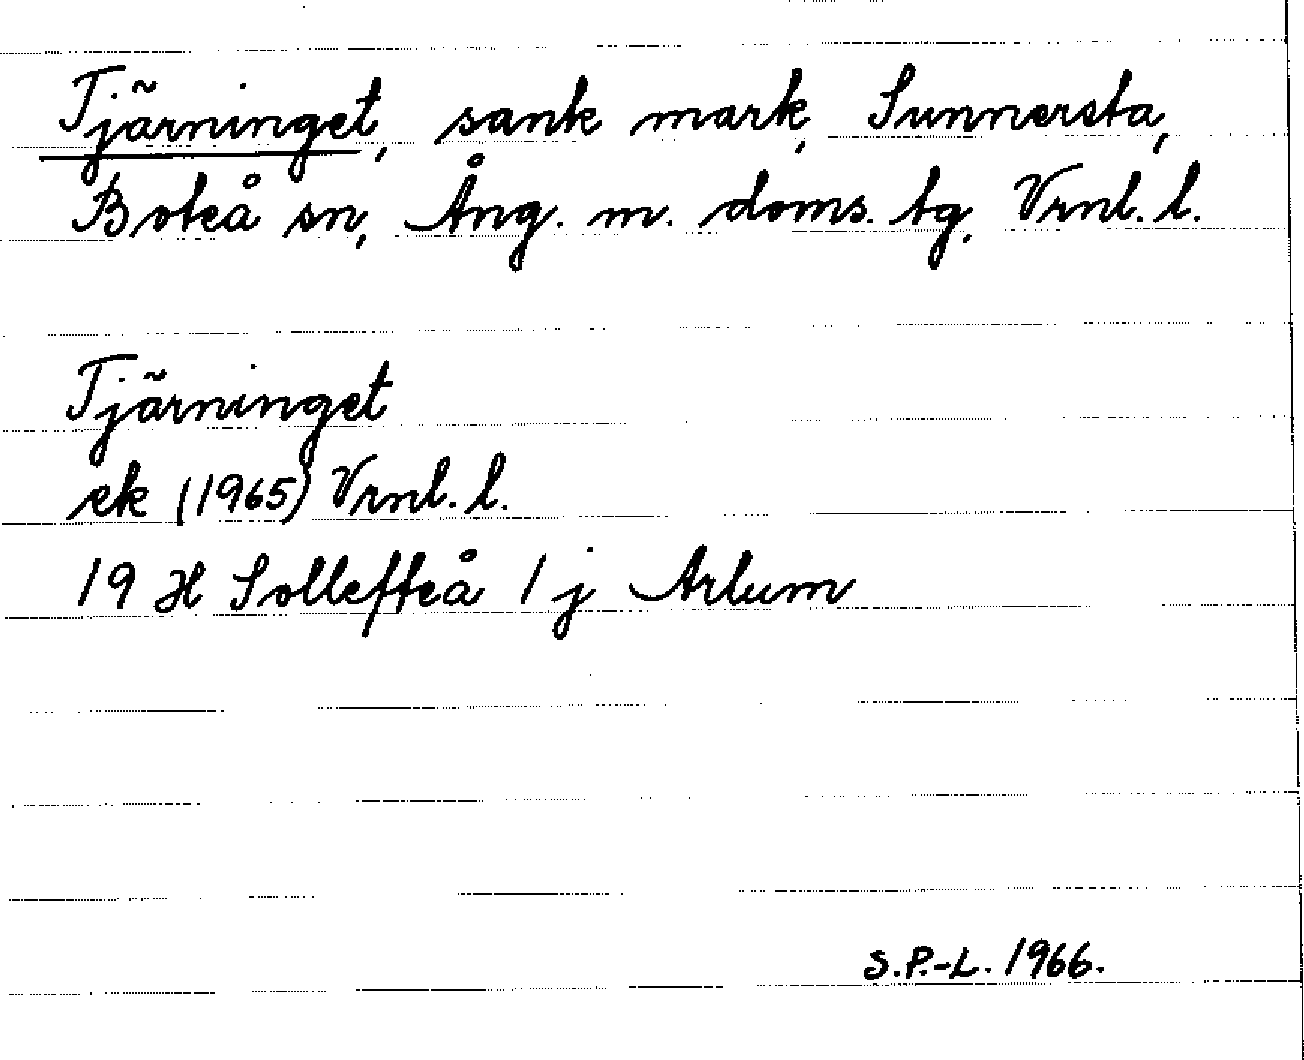 Tjärninget, sank mark, Sunnersta,
Boteå sn, Ång. m. doms. tg. Vrnl. l.
Tjärninget
ek (1965) Vrnl. l.
19 H Sollefteå 1 j Arlum
S.P.-L. 1966.